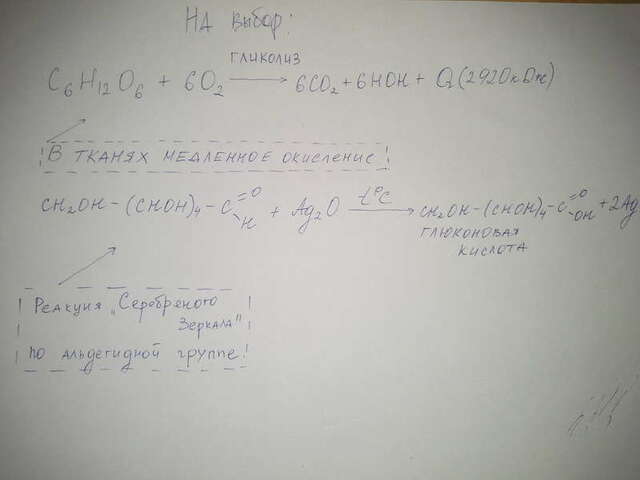 На выбор:
C6H12O6 + 6O2 гликолиз → 6CO2 + 6HOH + Q (2920кДж)
В тканях медленное окисление
CH2OH - (CHOH)4 - C =O H + Ag2O t°C → CH2OH - (CHOH)4 - C =O OH + 2Ag
глюконовая
кислота
Реакция „Серебряного
Зеркала"
по альдегидной группе!